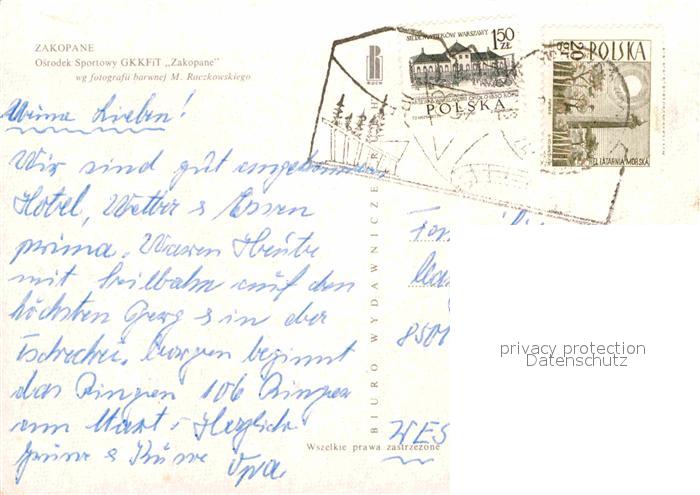 ZAKOPANE
Ośrodek Sportowy GKKFiT „Zakopane"
wg fotografii barwnej M. Raczkowskiego
RUCH
WARSZAWY
1,50
ZŁ
POLSKA
20
GR
POLSKA
HEL LATARNIA MORSKA
Meine Lieben!
Wir sind gut angekommen
Hotel, Wetter & Essen
prima. Waren Heute
mit Seilbahn auf den
höchsten Berg & in der
Tschechei. Morgen beginnt
das Ringen 106 Ringer
am Start. Herzliche
Grüsse & Küsse Opa
BIURO WYDAWNICZE RUCH
8501
WES
Wszelkie prawa zastrzeżone
privacy protection
Datenschutz